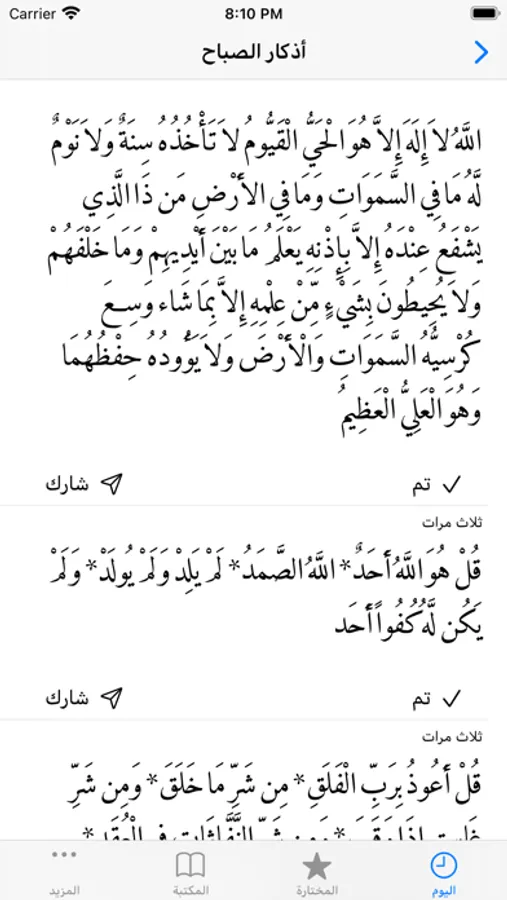 Carrier 8:10 PM
أذكار الصباح
اللَّهُ لاَ إِلَهَ إِلاَّ هُوَ الْحَيُّ الْقَيُّومُ لاَ تَأْخُذُهُ سِنَةٌ وَلاَ نَوْمٌ
لَّهُ مَا فِي السَّمَوَاتِ وَمَا فِي الأَرْضِ مَن ذَا الَّذِي
يَشْفَعُ عِنْدَهُ إِلاَّ بِإِذْنِهِ يَعْلَمُ مَا بَيْنَ أَيْدِيهِمْ وَمَا خَلْفَهُمْ
وَلاَ يُحِيطُونَ بِشَيْءٍ مِّنْ عِلْمِهِ إِلاَّ بِمَا شَاء وَسِعَ
كُرْسِيُّهُ السَّمَوَاتِ وَالْأَرْضَ وَلاَ يَؤُودُهُ حِفْظُهُمَا
وَهُوَ الْعَلِيُّ الْعَظِيمُ
تم شارك
ثلاث مرات
قُلْ هُوَ اللَّهُ أَحَدٌ* اللَّهُ الصَّمَدُ* لَمْ يَلِدْ وَلَمْ يُولَدْ* وَلَمْ
يَكُن لَّهُ كُفُواً أَحَد
تم شارك
ثلاث مرات
قُلْ أَعُوذُ بِرَبِّ الْفَلَقِ* مِن شَرِّ مَا خَلَقَ* وَمِن شَرِّ
غَاسِقٍ إِذَا وَقَبَ* وَمِن شَرِّ النَّفَّاثَاتِ فِي الْعُقَدِ*
اليوم المختارة المكتبة المزيد